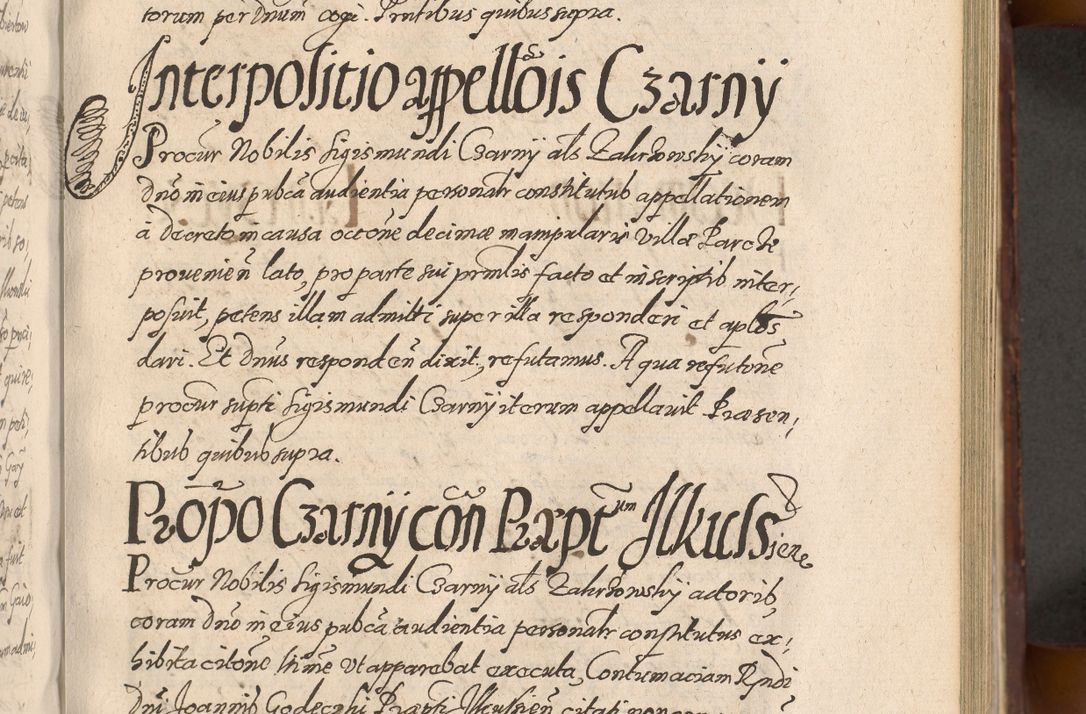 torum per Dnum cogi. Pntibus quibus supra.
Interpolitio appellõis Czarnÿ
Procur Nobilis Sigismundi Czarnÿ als Zakrzowskÿ coram
dnõ in eius pubca audientia personalr constitutus appellationem
á decreto in causa occõne decimæ manipularis villæ Parcze
prouenień lato, pro parte sui prnlis facto et in scriptis inter,
posuit, petens illam admitti super illa responderi et aplos
dari. Et Dnus responden̄ dixit, refutamus. A qua refutõne
procur supti Sigismundi Czarnÿ iterum appellauit Præsen,
tibus quibus supra.
Propõ Czarnÿ con Præptum Ilkussiens
Procur Nobilis Sigismundi Czarnÿ als Zakrzowskÿ actoris,
coram Dnõ in eius pubca audientia personalr constitutus ex,
hibita citõne hinc ut apparebat executa, Contumaciam Rndi
Dni Joannis Godeczki Præpti Ilkusień citati non